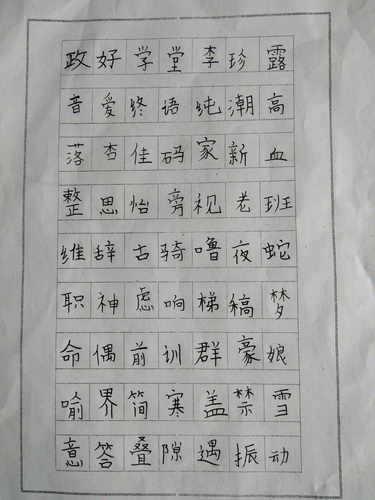 政好学堂李珍露
音爱终语纯潮高
落杏佳码家新血
整思怡旁视老班
维辞古骑噜夜蛇
职神虑响梯稿梦
命偶前训群豪娘
喻界简寒盖禁雪
意答叠隙遇振动